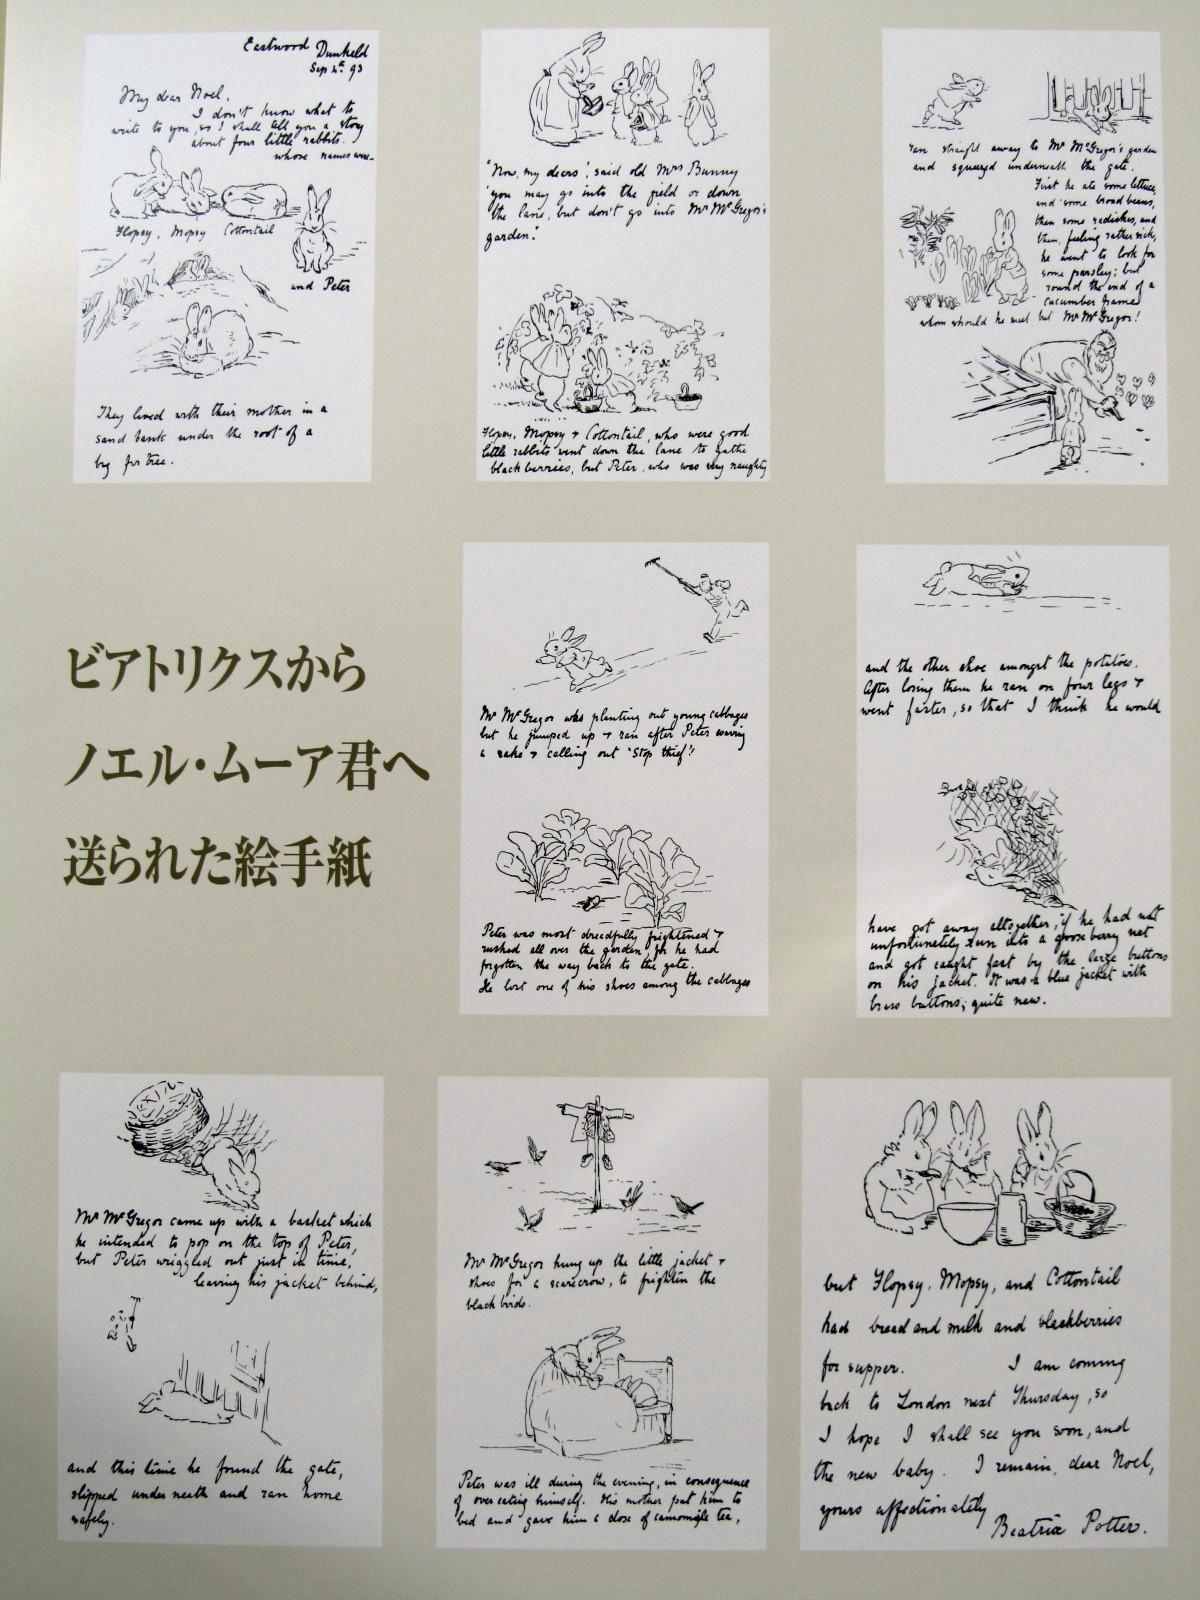 Eastwood Dunkeld
Sep 4th 93
My dear Noel,
I don't know what to
write to you, so I shall tell you a story
about four little rabbits.
whose names were—
Flopsy, Mopsy Cottontail
and Peter
They lived with their mother in a
sand bank under the root of a
big fir tree.
"Now, my dears", said old Mrs Bunny
"you may go into the field or down
the lane, but don't go into Mr McGregor's
garden."
Flopsy, Mopsy & Cottontail, who were good
little rabbits went down the lane to gather
black berries, but Peter, who was very naughty
ran straight away to Mr McGregor's garden
and squeezed underneath the gate.
First he ate some lettuce,
and some broad beans,
then some radishes, and
then, feeling rather sick,
he went to look for
some parsley; but
round the end of a
cucumber frame
whom should he meet but Mr McGregor!
ビアトリクスから
ノエル・ムーア君へ
送られた絵手紙
Mr McGregor was planting out young cabbages
but he jumped up & ran after Peter waving
a rake & calling out 'Stop thief'!
Peter was most dreadfully frightened &
rushed all over the garden, for he had
forgotten the way back to the gate.
He lost one of his shoes among the cabbages
and the other shoe amongst the potatoes.
After losing them he ran on four legs &
went faster, so that I think he would
have got away altogether, if he had not
unfortunately run into a gooseberry net
and got caught fast by the large buttons
on his jacket. It was a blue jacket with
brass buttons; quite new.
Mr McGregor came up with a basket which
he intended to pop on the top of Peter,
but Peter wriggled out just in time,
leaving his jacket behind,
and this time he found the gate,
slipped underneath and ran home
safely.
Mr McGregor hung up the little jacket &
shoes for a scarecrow, to frighten the
black birds.
Peter was ill during the evening, in consequence
of over eating himself. His mother put him to
bed and gave him a dose of camomile tea,
but Flopsy, Mopsy, and Cottontail
had bread and milk and blackberries
for supper. I am coming
back to London next Thursday, so
I hope I shall see you soon, and
the new baby. I remain, dear Noel,
yours affectionately
Beatrix Potter.